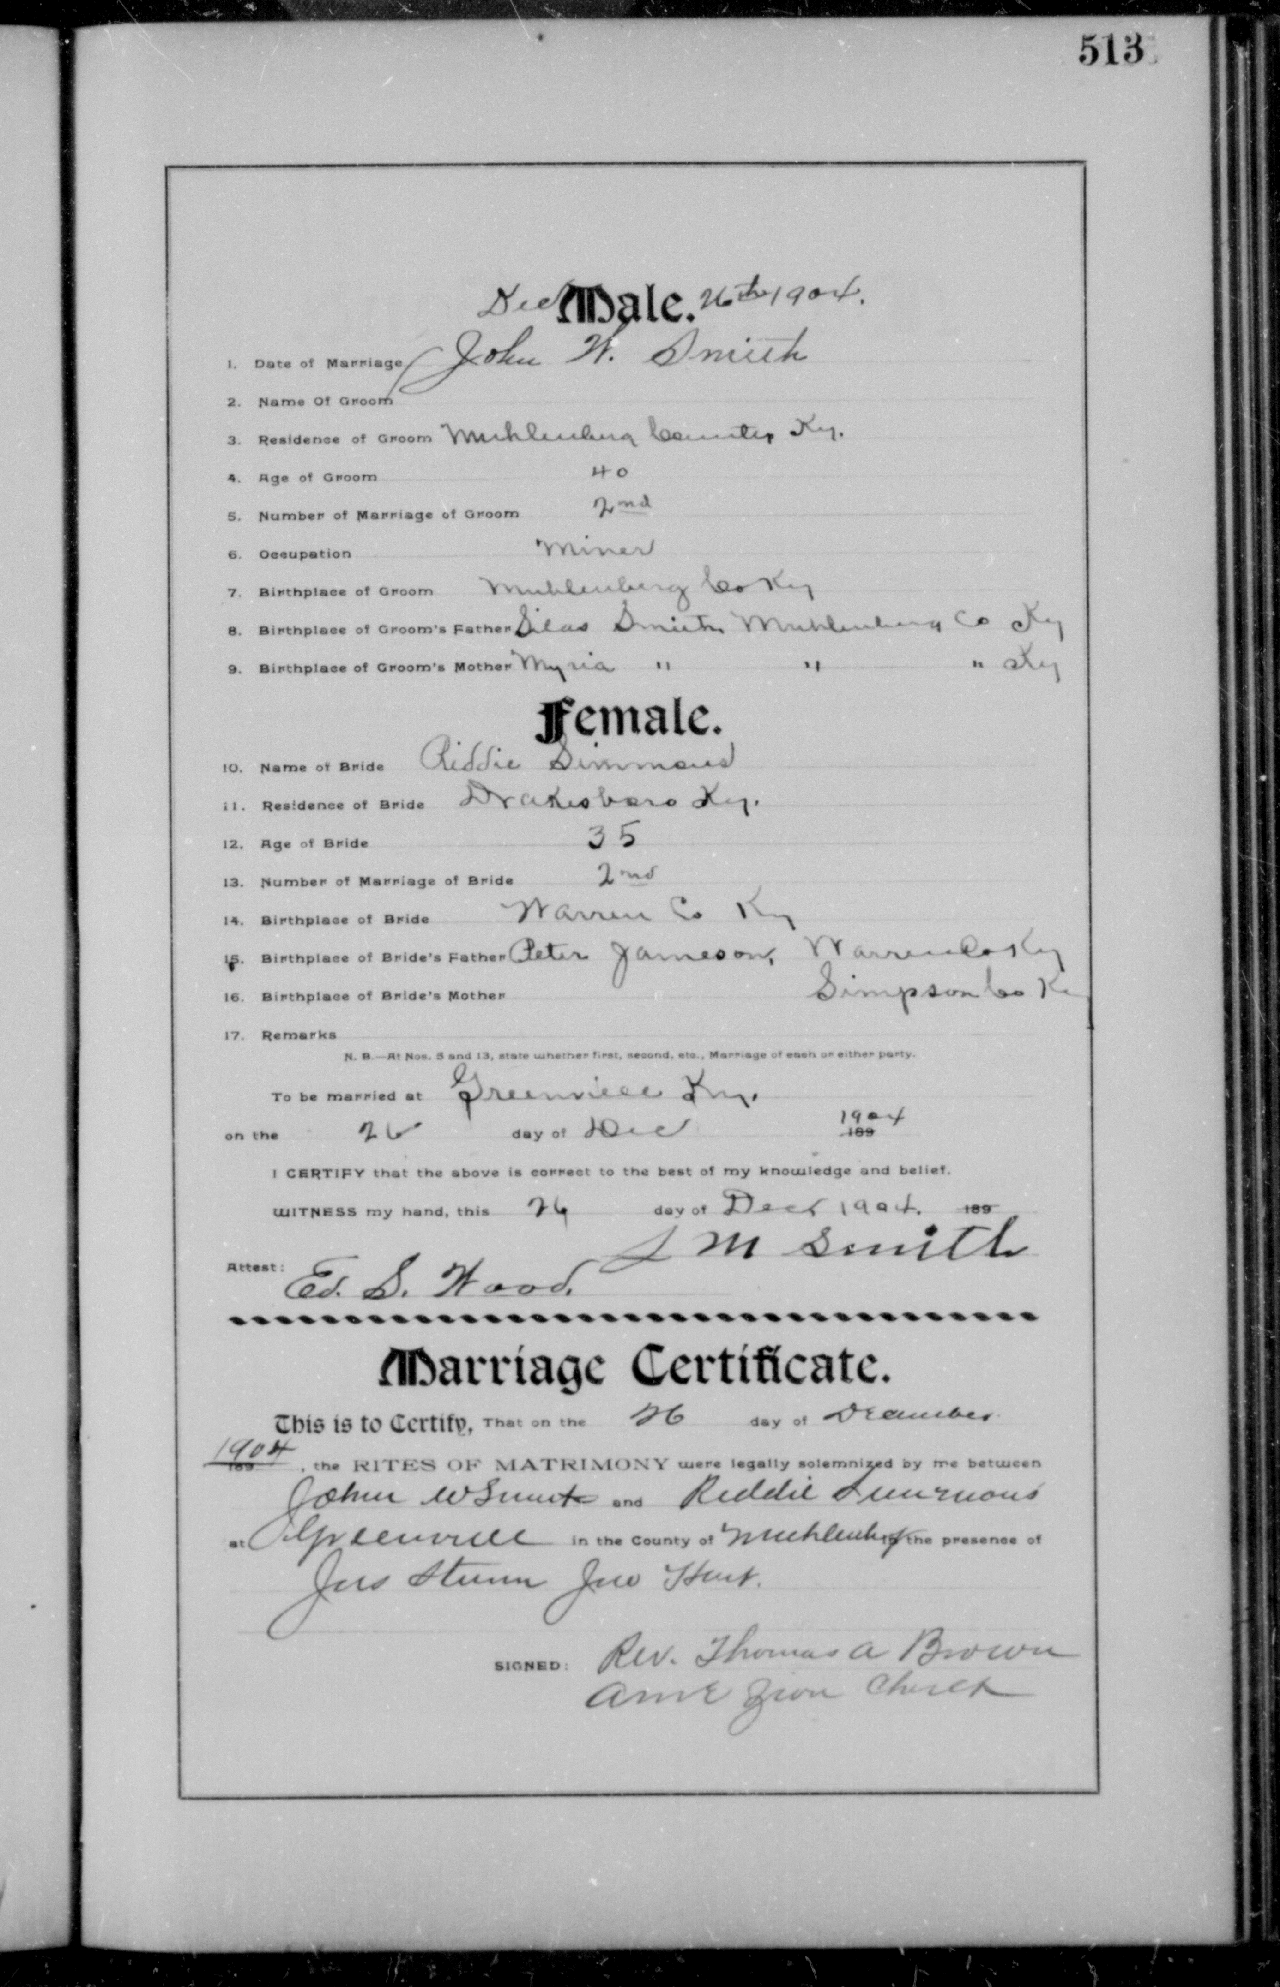 513
Dec Male. 26th 1904.
1. Date of Marriage John W. Smith
2. Name Of Groom
3. Residence of Groom Muhlenberg County Ky.
4. Age of Groom 40
5. Number of Marriage of Groom 2nd
6. Occupation Miner
7. Birthplace of Groom Muhlenberg Co Ky
8. Birthplace of Groom's Father Silas Smith, Muhlenberg Co Ky
9. Birthplace of Groom's Mother Myria " " " Ky
Female.
10. Name of Bride Riddie Simmons
11. Residence of Bride Drakesboro Ky.
12. Age of Bride 35
13. Number of Marriage of Bride 2nd
14. Birthplace of Bride Warren Co Ky
15. Birthplace of Bride's Father Peter Jameson, Warren Co Ky
16. Birthplace of Bride's Mother Simpson Co Ky
17. Remarks
N. B.—At Nos. 5 and 13, state whether first, second, etc., Marriage of each or either party.
To be married at Greenville Ky.
on the 26 day of Dec 1904 189
I CERTIFY that the above is correct to the best of my knowledge and belief.
WITNESS my hand, this 26 day of Dec 1904. 189
J M Smith
Attest: Ed. S. Wood.
Marriage Certificate.
This is to Certify, That on the 26 day of December
1904 189 , the RITES OF MATRIMONY were legally solemnized by me between
John W Smith and Riddie Simmons
at Greenville in the County of Muhlenberg in the presence of
Jas Jno Hunt.
SIGNED: Rev. Thomas A Brown
AME Zion Church